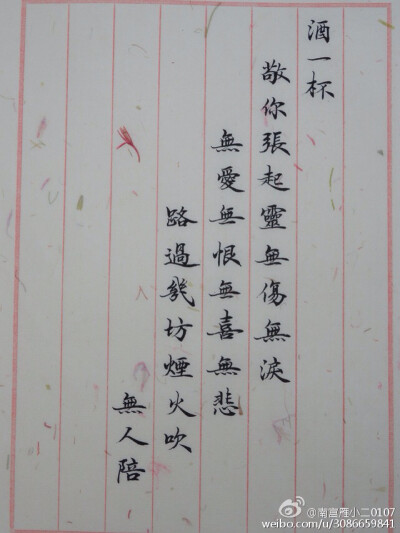 酒一杯
敬你張起靈無傷無淚
無愛無恨無喜無悲
路過幾坊煙火吹
無人陪
@南宫雁小二0107
weibo.com/u/3086659841